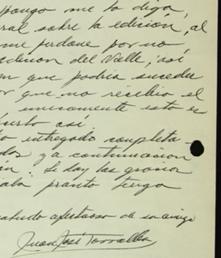 pongo me lo diga,
ral sobre la edición, al
me perdone por no
edicion del Valle, así
en que podria suceder
or que no recibio el
unicamente este es
justo así
entregado completa-
dos y a continuacion
le doy las gracias
pronto tenga
saludo afectuoso de su amigo
Juan José Torralba